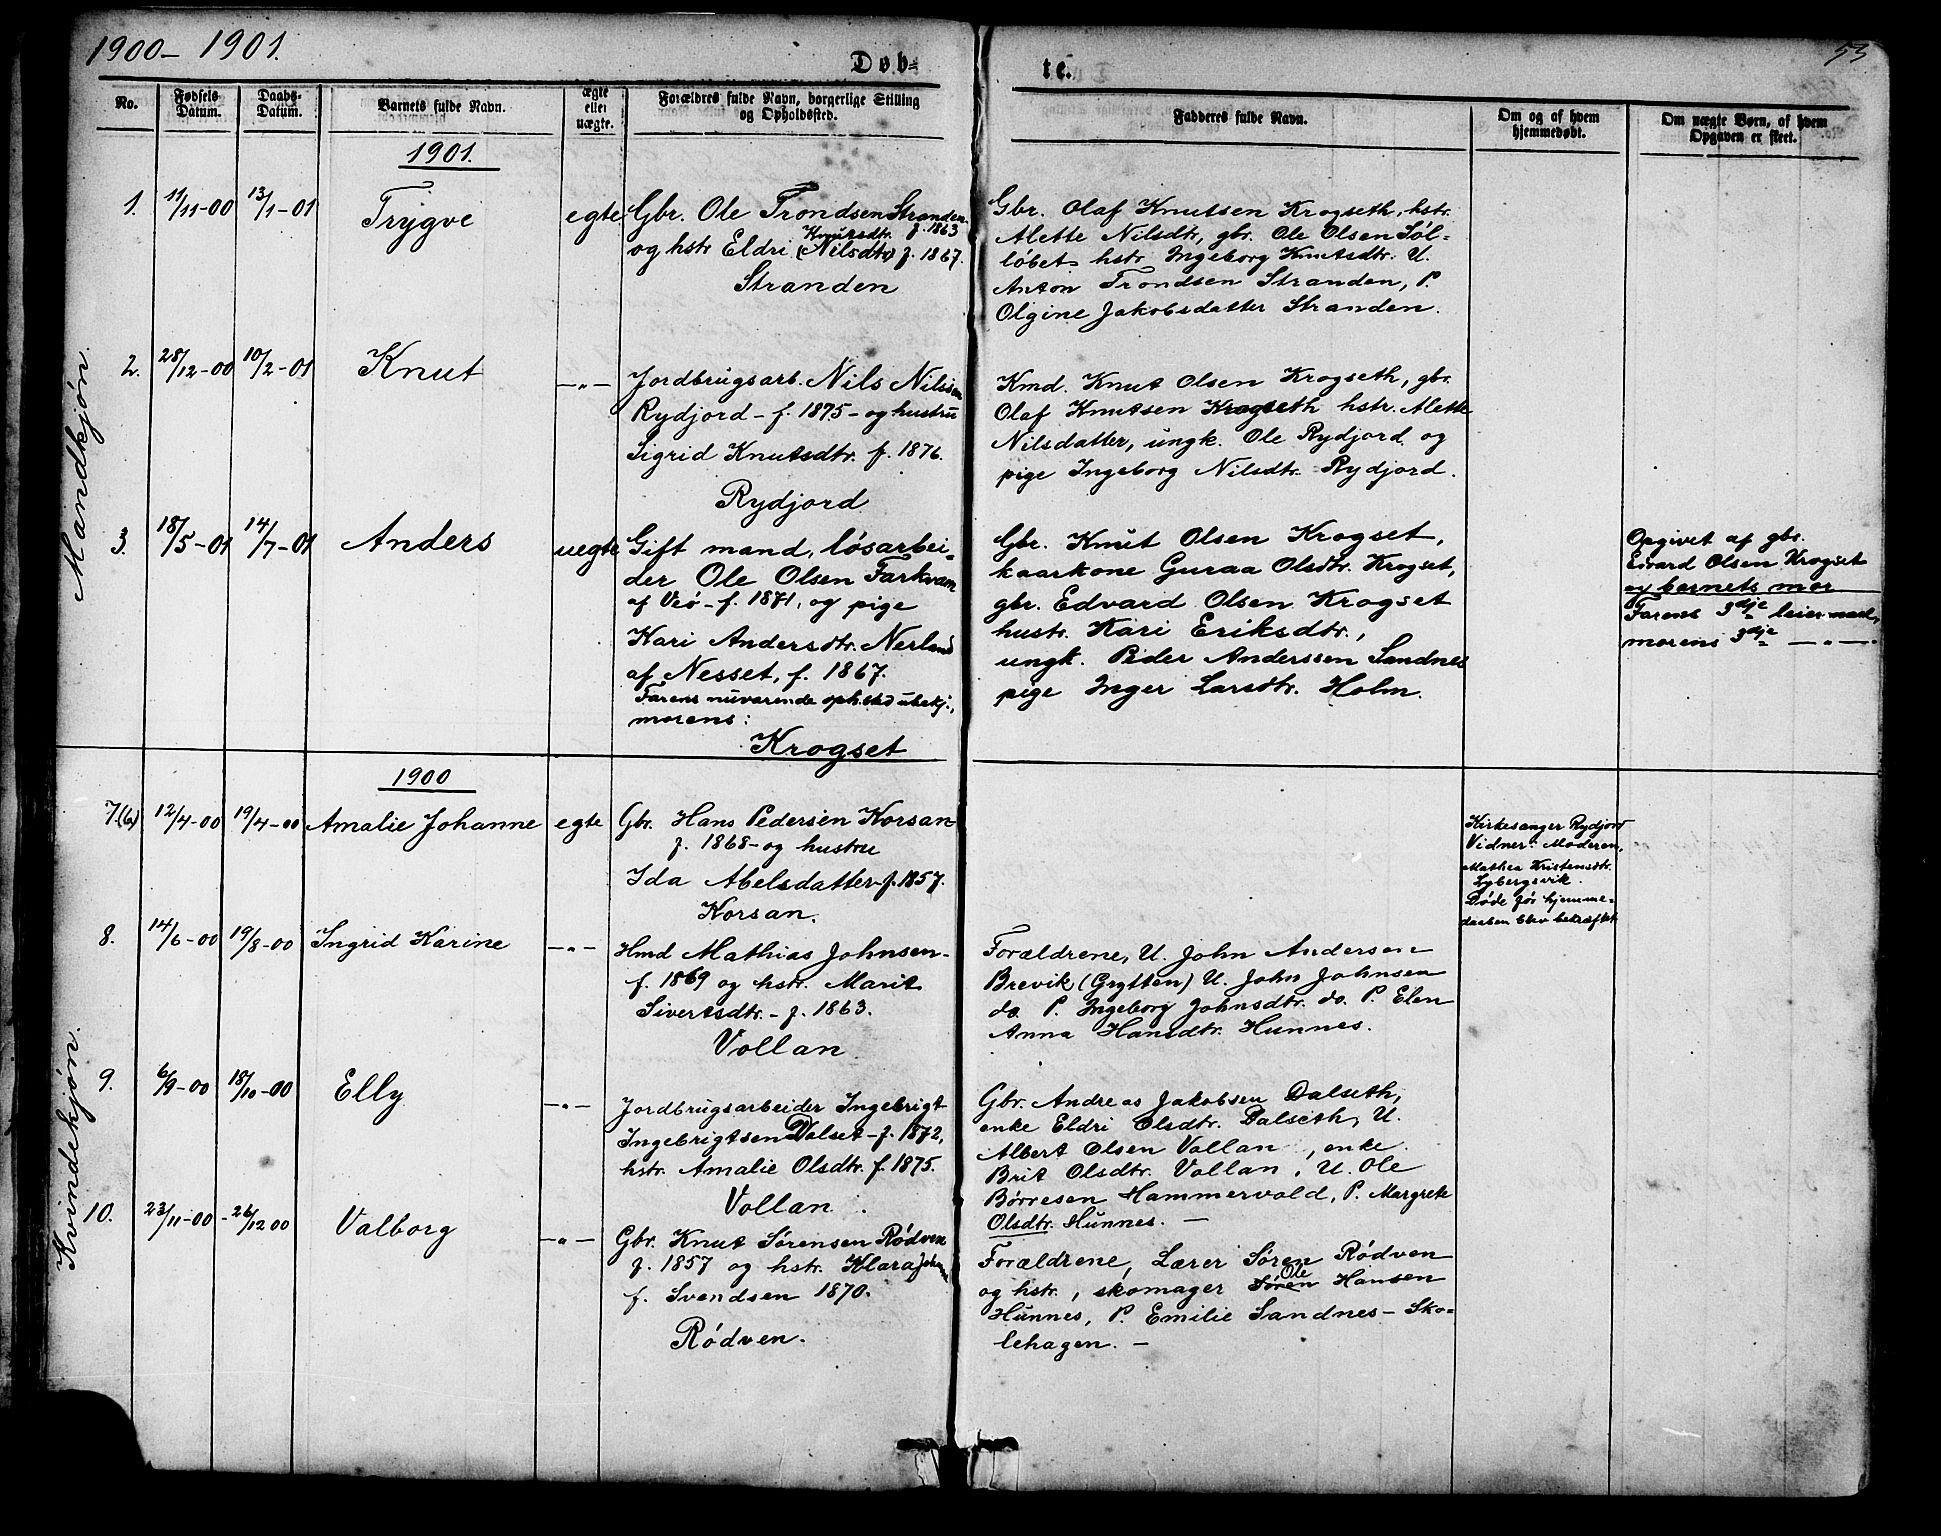 1900–1901.
Døb-
te.
53
No.
Fødsels Datum.
Daabs-Datum.
Barnets fulde Navn.
ægte eller uægte.
Forældres fulde Navn, borgerlige Stilling og Opholdssted.
Fadderes fulde Navn.
Om og af hvem hjemmedøbt.
Om uægte Børn, af hvem Opgaven er skeet.
Mandkjøn.
1901.
1. 11/11-00 13/1-01 Trygve egte
Gbr. Ole Trondsen Stranden f. 1863
og hstr Eldri Knutsdtr. (Nilsdtr) f. 1867.
Stranden
Gbr. Olaf Knutsen Krogseth, hstr.
Alette Nilsdtr, gbr. Ole Olsen Søl-
løbet hstr. Ingeborg Knutsdtr. U.
Anton Trondsen Stranden, P.
Olgine Jakobsdatter Stranden.
2. 28/12-00 10/2-01 Knut –„–
Jordbrugsarb. Nils Nilssen
Rydjord – f. 1875 – og hustru
Sigrid Knutsdtr. f. 1876.
Rydjord
Kmd. Knut Olsen Krogseth, gbr.
Olaf Knutsen Krogseth hstr. Alette
Nilsdatter, ungk. Ole Rydjord og
pige Ingeborg Nilsdtr. Rydjord.
3. 18/5-01 14/7-01 Anders uegte
Gift mand, løsarbei-
der Ole Olsen Farkvam
af Veø – f. 1871, og pige
Kari Andersdtr. Nerland
af Nesset, f. 1867.
Farens nuværende oph.sted ubekj.,
morens:
Krogset
Gbr. Knut Olsen Krogset,
kaarkone Guraa Olsdtr. Krogset,
gbr. Edvard Olsen Krogset
hustr. Kari Eriksdtr.,
ungk. Peder Anderssen Sandnes
pige Inger Larsdtr. Holm.
Opgivet af gbr.
Edvard Olsen Krogset
og barnets mor
Farens 3dje leiermaal,
morens 3dje –„–
Kvindekjøn.
1900
7.(6) 12/4-00 19/4-00 Amalie Johanne egte
Gbr. Hans Pedersen Korsan
f. 1868 – og hustru
Ida Abelsdatter – f. 1857.
Korsan.
Kirkesanger Rydjord
Vidner: Moderen,
Mathea Kristensdtr.
Lybergsvik.
Døde før hjemme-
daaben blev bekræftet
8. 14/6-00 19/8-00 Ingrid Karine –„–
Hmd Mathias Johnsen –
f. 1869 og hstr. Marit
Sivertsdtr. – f. 1863.
Vollan
Forældrene, U. John Andersen
Brevik (Grytten) U. John Johnsen
do. P. Ingeborg Johnsdtr. do. P. Elen
Anna Hansdtr. Hunnes.
9. 6/9-00 18/10-00 Elly –„–
Jordbrugsarbeider Ingebrigt
Ingebrigtsen Dalset – f. 1872,
hstr. Amalie Olsdtr. f. 1875.
Vollan.
Gbr. Andreas Jakobsen Dalseth,
enke Eldri Olsdtr. Dalseth, U.
Albert Olsen Vollan, enke
Brit Olsdtr. Vollan, U. Ole
Børresen Hammervold, P. Margrete
Olsdtr. Hunnes. –
10. 23/11-00 - 26/12 00 Valborg –„–
Gbr. Knut Sørensen Rødven
f. 1857 og hstr. Klara Johanne
f. Svendsen 1870.
Rødven.
Forældrene, Lærer Søren Rødven
og hstr., skomager Søren Ole Hansen
Hunnes, P. Emilie Sandnes – Sko-
lehagen. –